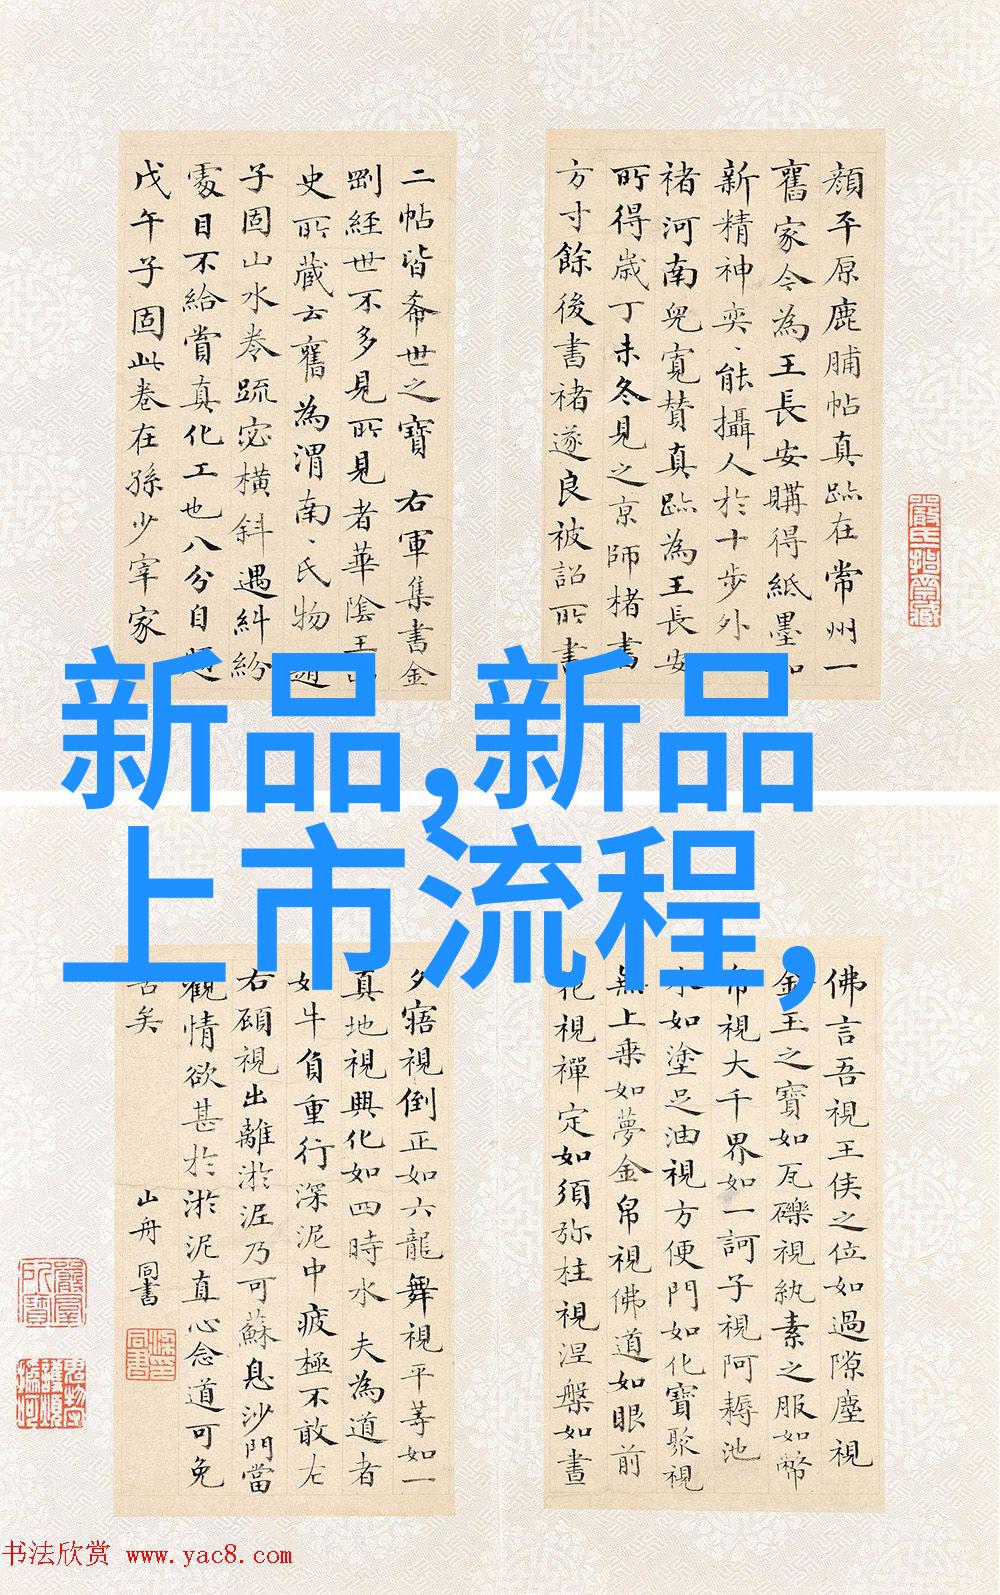 顔平原鹿脯帖真跡在常州一
舊家今為王長安購得紙墨如
新精神奕、能攝人於十步外
褚河南兒寬贊真跡為王長安
所得歲丁未冬見之京師楮書
方寸餘後書褚遂良被詔所書
二帖皆希世之寶 右軍集書金
剛經世不多見所見者華陰王
史所藏云舊為渭南、氏物
子固山水卷疏密橫斜遇糾紛
處目不給賞真化工也八分自題
戊午子固此卷在孫少宰家
新品,新品
上市流程,
佛言吾視王侯之位如過隙塵視
金玉之寶如瓦礫視紈素之服如幣
帛視大千界如一訶子視阿耨池
水如塗足油視方便門如化寶聚視
無上乘如夢金帛視佛道如眼前
花視禪定如須弥柱視涅槃如晝
夕寤視倒正如六龍舞視平等如一
真地視興化如四時水 夫為道者
如牛負重行深泥中疲極不敢左
右顧視出離淤泥乃可蘇息沙門當
觀情欲甚於淤泥直心念道可免
苦矣 山舟同書
书法欣赏 www.yac8.com